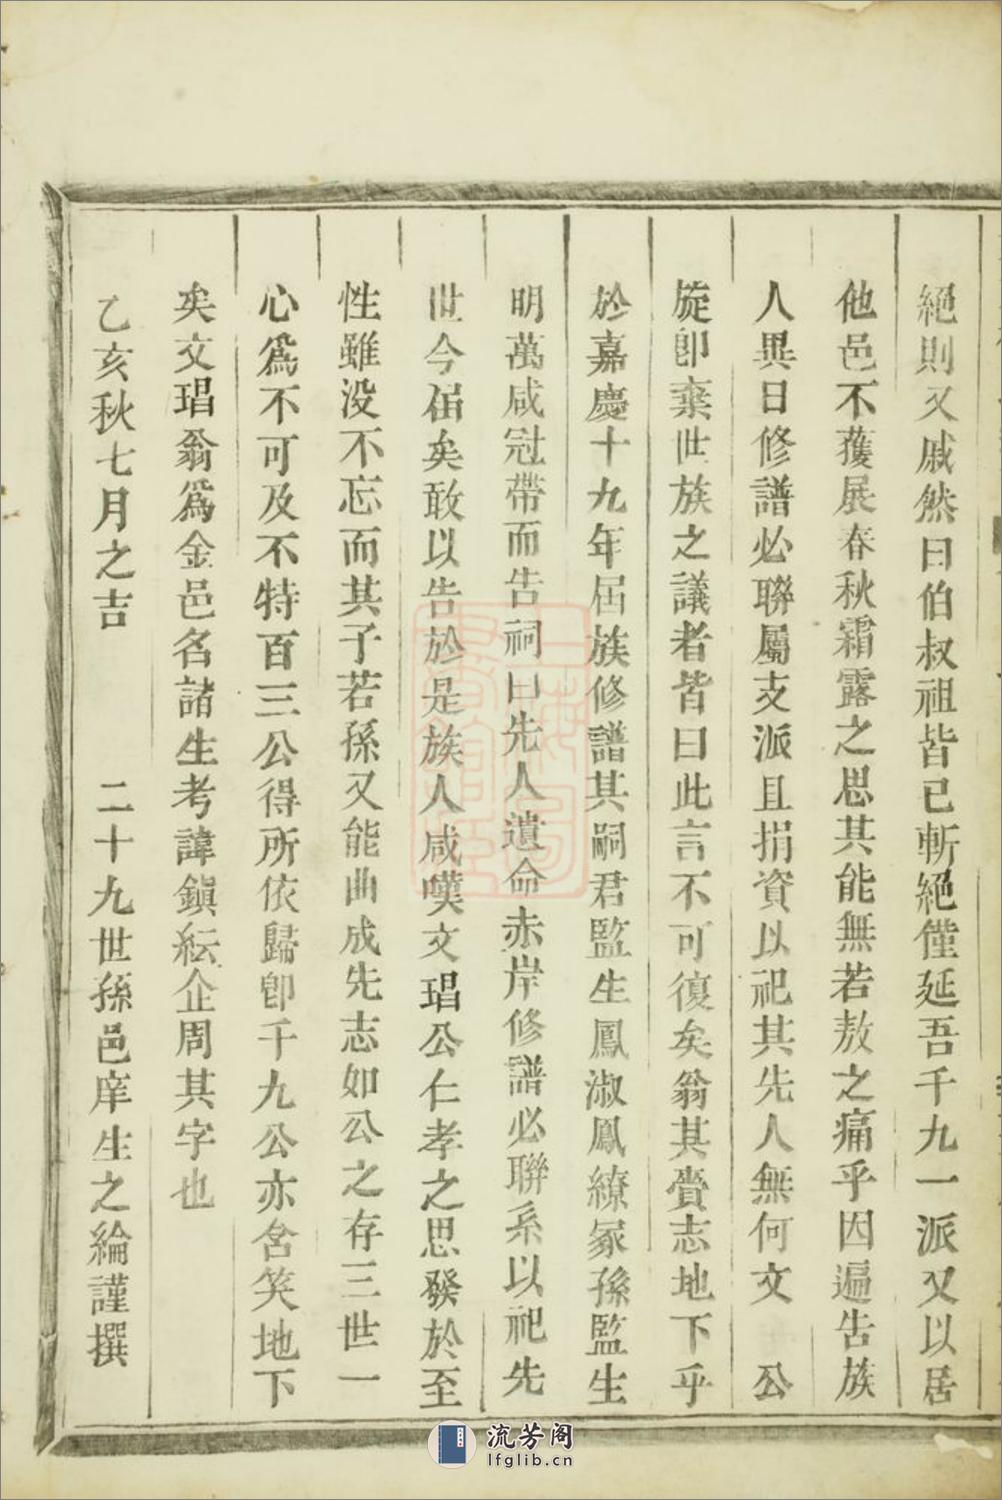 絕則又戚然曰伯叔祖皆已斬絕僅延吾千九一派又以居
他邑不獲展春秋霜露之思其能無若敖之痛乎因遍告族
人異日修譜必聯屬支派且捐資以祀其先人無何文　公
旋卽棄世族之議者皆曰此言不可復矣翁其賫志地下乎
於嘉慶十九年届族修譜其嗣君監生鳳淑鳳繚冢孫監生
明萬咸冠帶而告祠曰先人遺命赤岸修譜必聯系以祀先
世今届矣敢以告於是族人咸嘆文琩公仁孝之思發於至
性雖没不忘而其子若孫又能曲成先志如公之存三世一
心爲不可及不特百三公得所依歸卽千九公亦含笑地下
矣文琩翁爲金邑名諸生考諱鎭紜企周其字也
乙亥秋七月之吉　二十九世孫邑庠生之綸謹撰
流芳阁
lfglib.cn